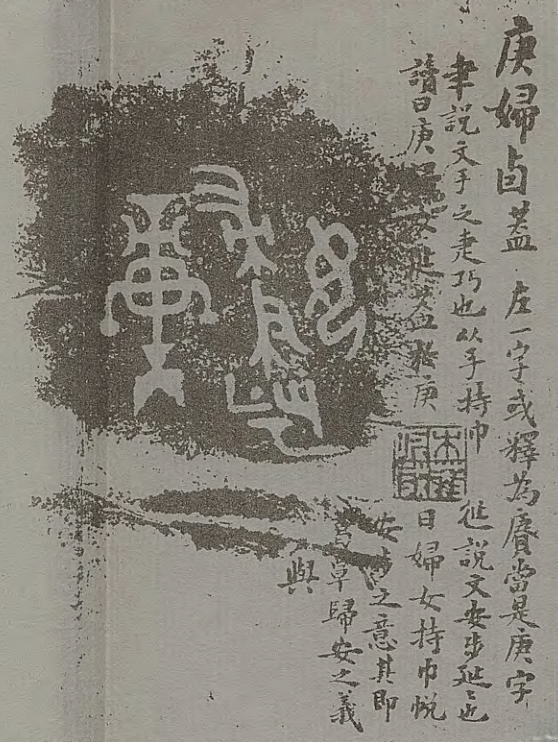 庚婦卣蓋 左一字或釋為賡當是庚字
聿說文手之疌巧也从手持巾 㢟說文安步㢟〻也
讀曰庚 蓋 庚 日婦女持巾帨
安 之意其即
覃歸安之義
與